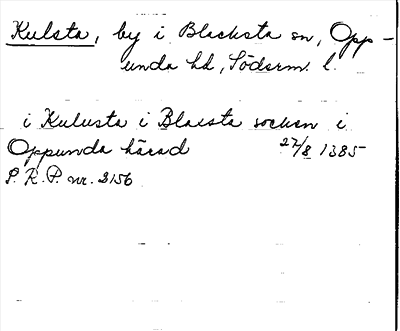 Kulsta, by i Blacksta sn, Opp-
unda hd, Söderm. l.
i Kulusta i Blaesta socken i
Oppunda härad 27/8 1385
S. R. P. nr. 2156